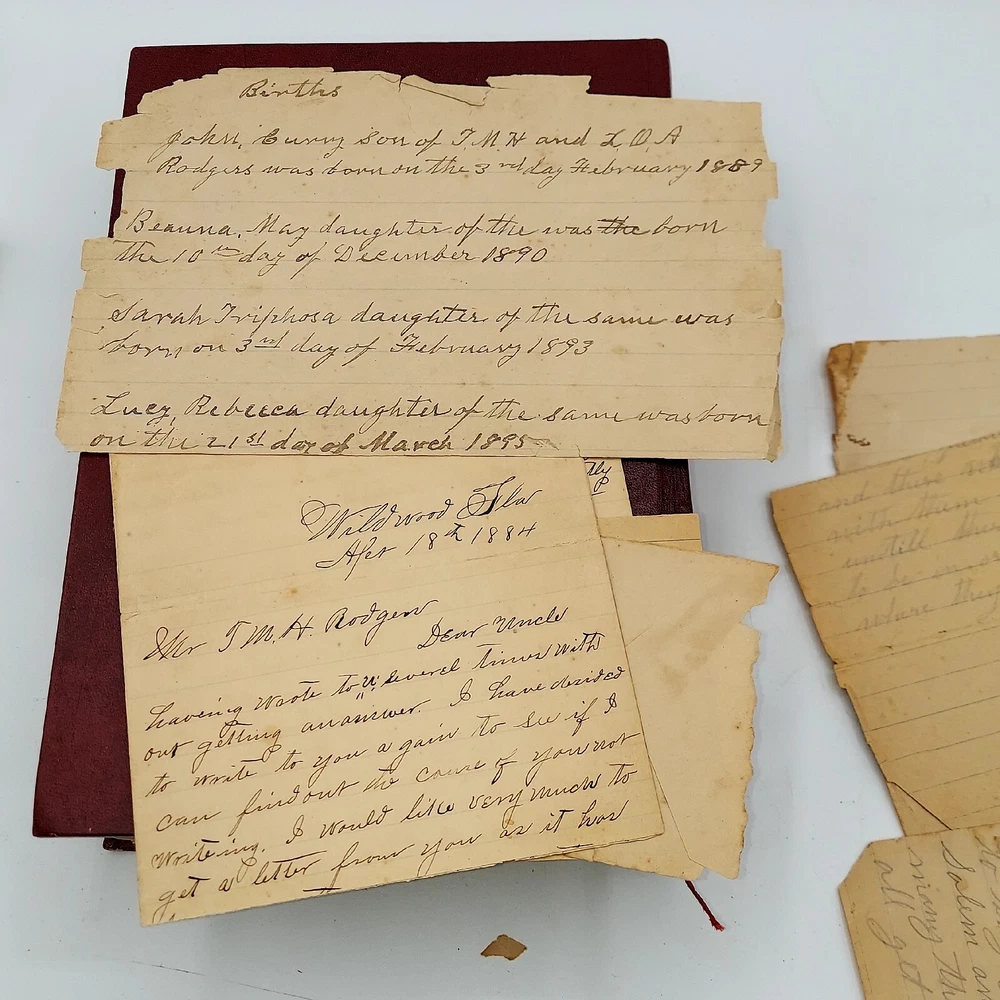 Births
John, Curry son of T. M H and L, O, A
Rodgers was born on the 3rd day February 1889
Beauna, May daughter of the was the born
the 10th day of December 1890
Sarah Triphosa daughter of the same was
born on 3rd day of February 1893
Lucy, Rebecca daughter of the same was born
on the 21st day of March 1895
Wildwood Fla
Apr 18th 1884
Mr T. M. H. Rodgers
Dear Uncle
haveing wrote to u several times with
out getting an answer. I have decided
to write to you a gain to see if I
can find out the cause of you not
writeing. I would like very much to
get a letter from you as it has
and there
with them
untill
to be
where they
Salem
all get